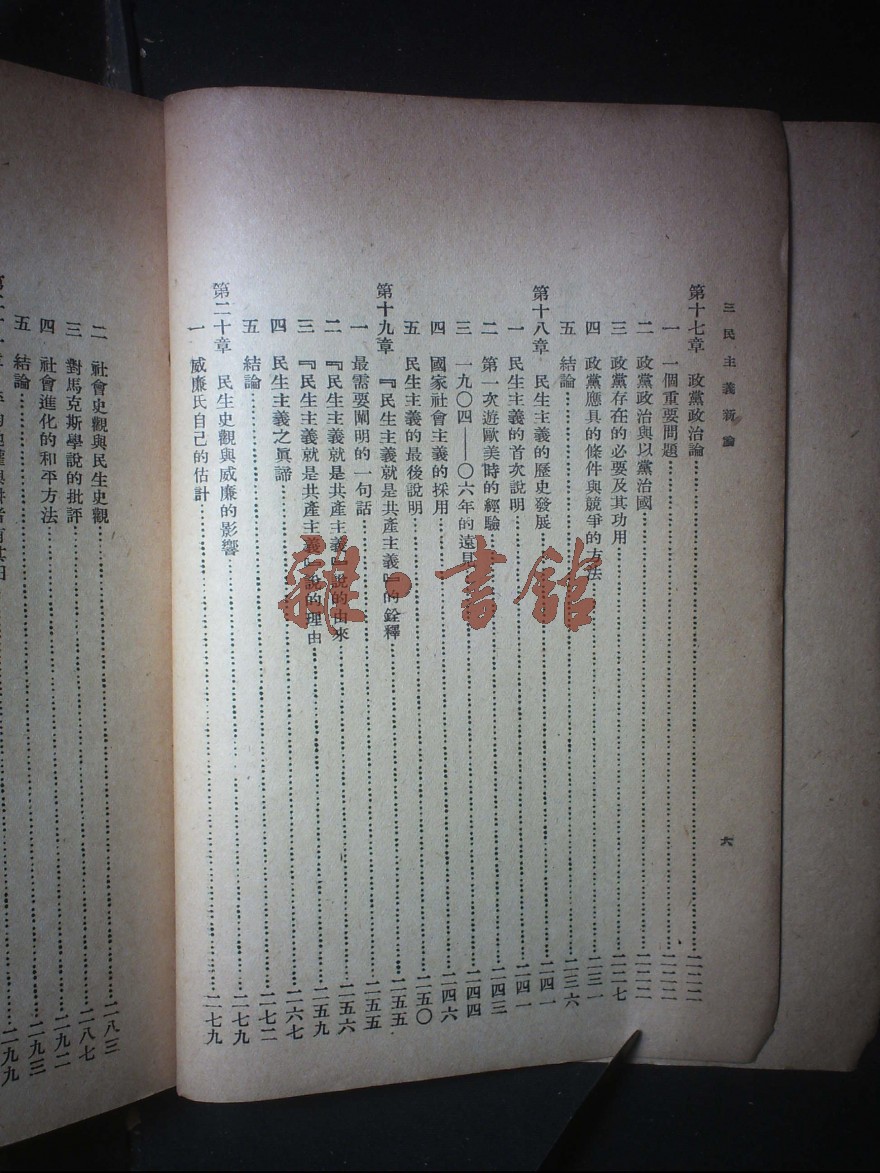 三民主義新論
六
第十七章 政黨政治論…………二二二
一 一個重要問題…………二二二
二 政黨政治與以黨治國…………二二二
三 政黨存在的必要及其功用…………二二七
四 政黨應具的條件與競爭的方法…………二三一
五 結論…………二三六
第十八章 民生主義的歷史發展…………二四一
一 民生主義的首次說明…………二四一
二 第一次遊歐美時的經驗…………二四三
三 一九〇四——〇六年的遠見…………二四四
四 國家社會主義的採用…………二四六
五 民生主義的最後說明…………二五〇
第十九章 『民生主義就是共產主義』的銓釋…………二五五
一 最需要闡明的一句話…………二五五
二 『民生主義就是共產主義』說的由來…………二五六
三 『民生主義就是共產主義』說的理由…………二五九
四 民生主義之眞諦…………二六七
五 結論…………二七二
第二十章 民生史觀與威廉的影響…………二七九
一 威廉氏自己的估計…………二七九
二 社會史觀與民生史觀…………二八三
三 對馬克斯學說的批評…………二八七
四 社會進化的和平方法…………二九二
五 結論…………二九三
二九九
雜·書館